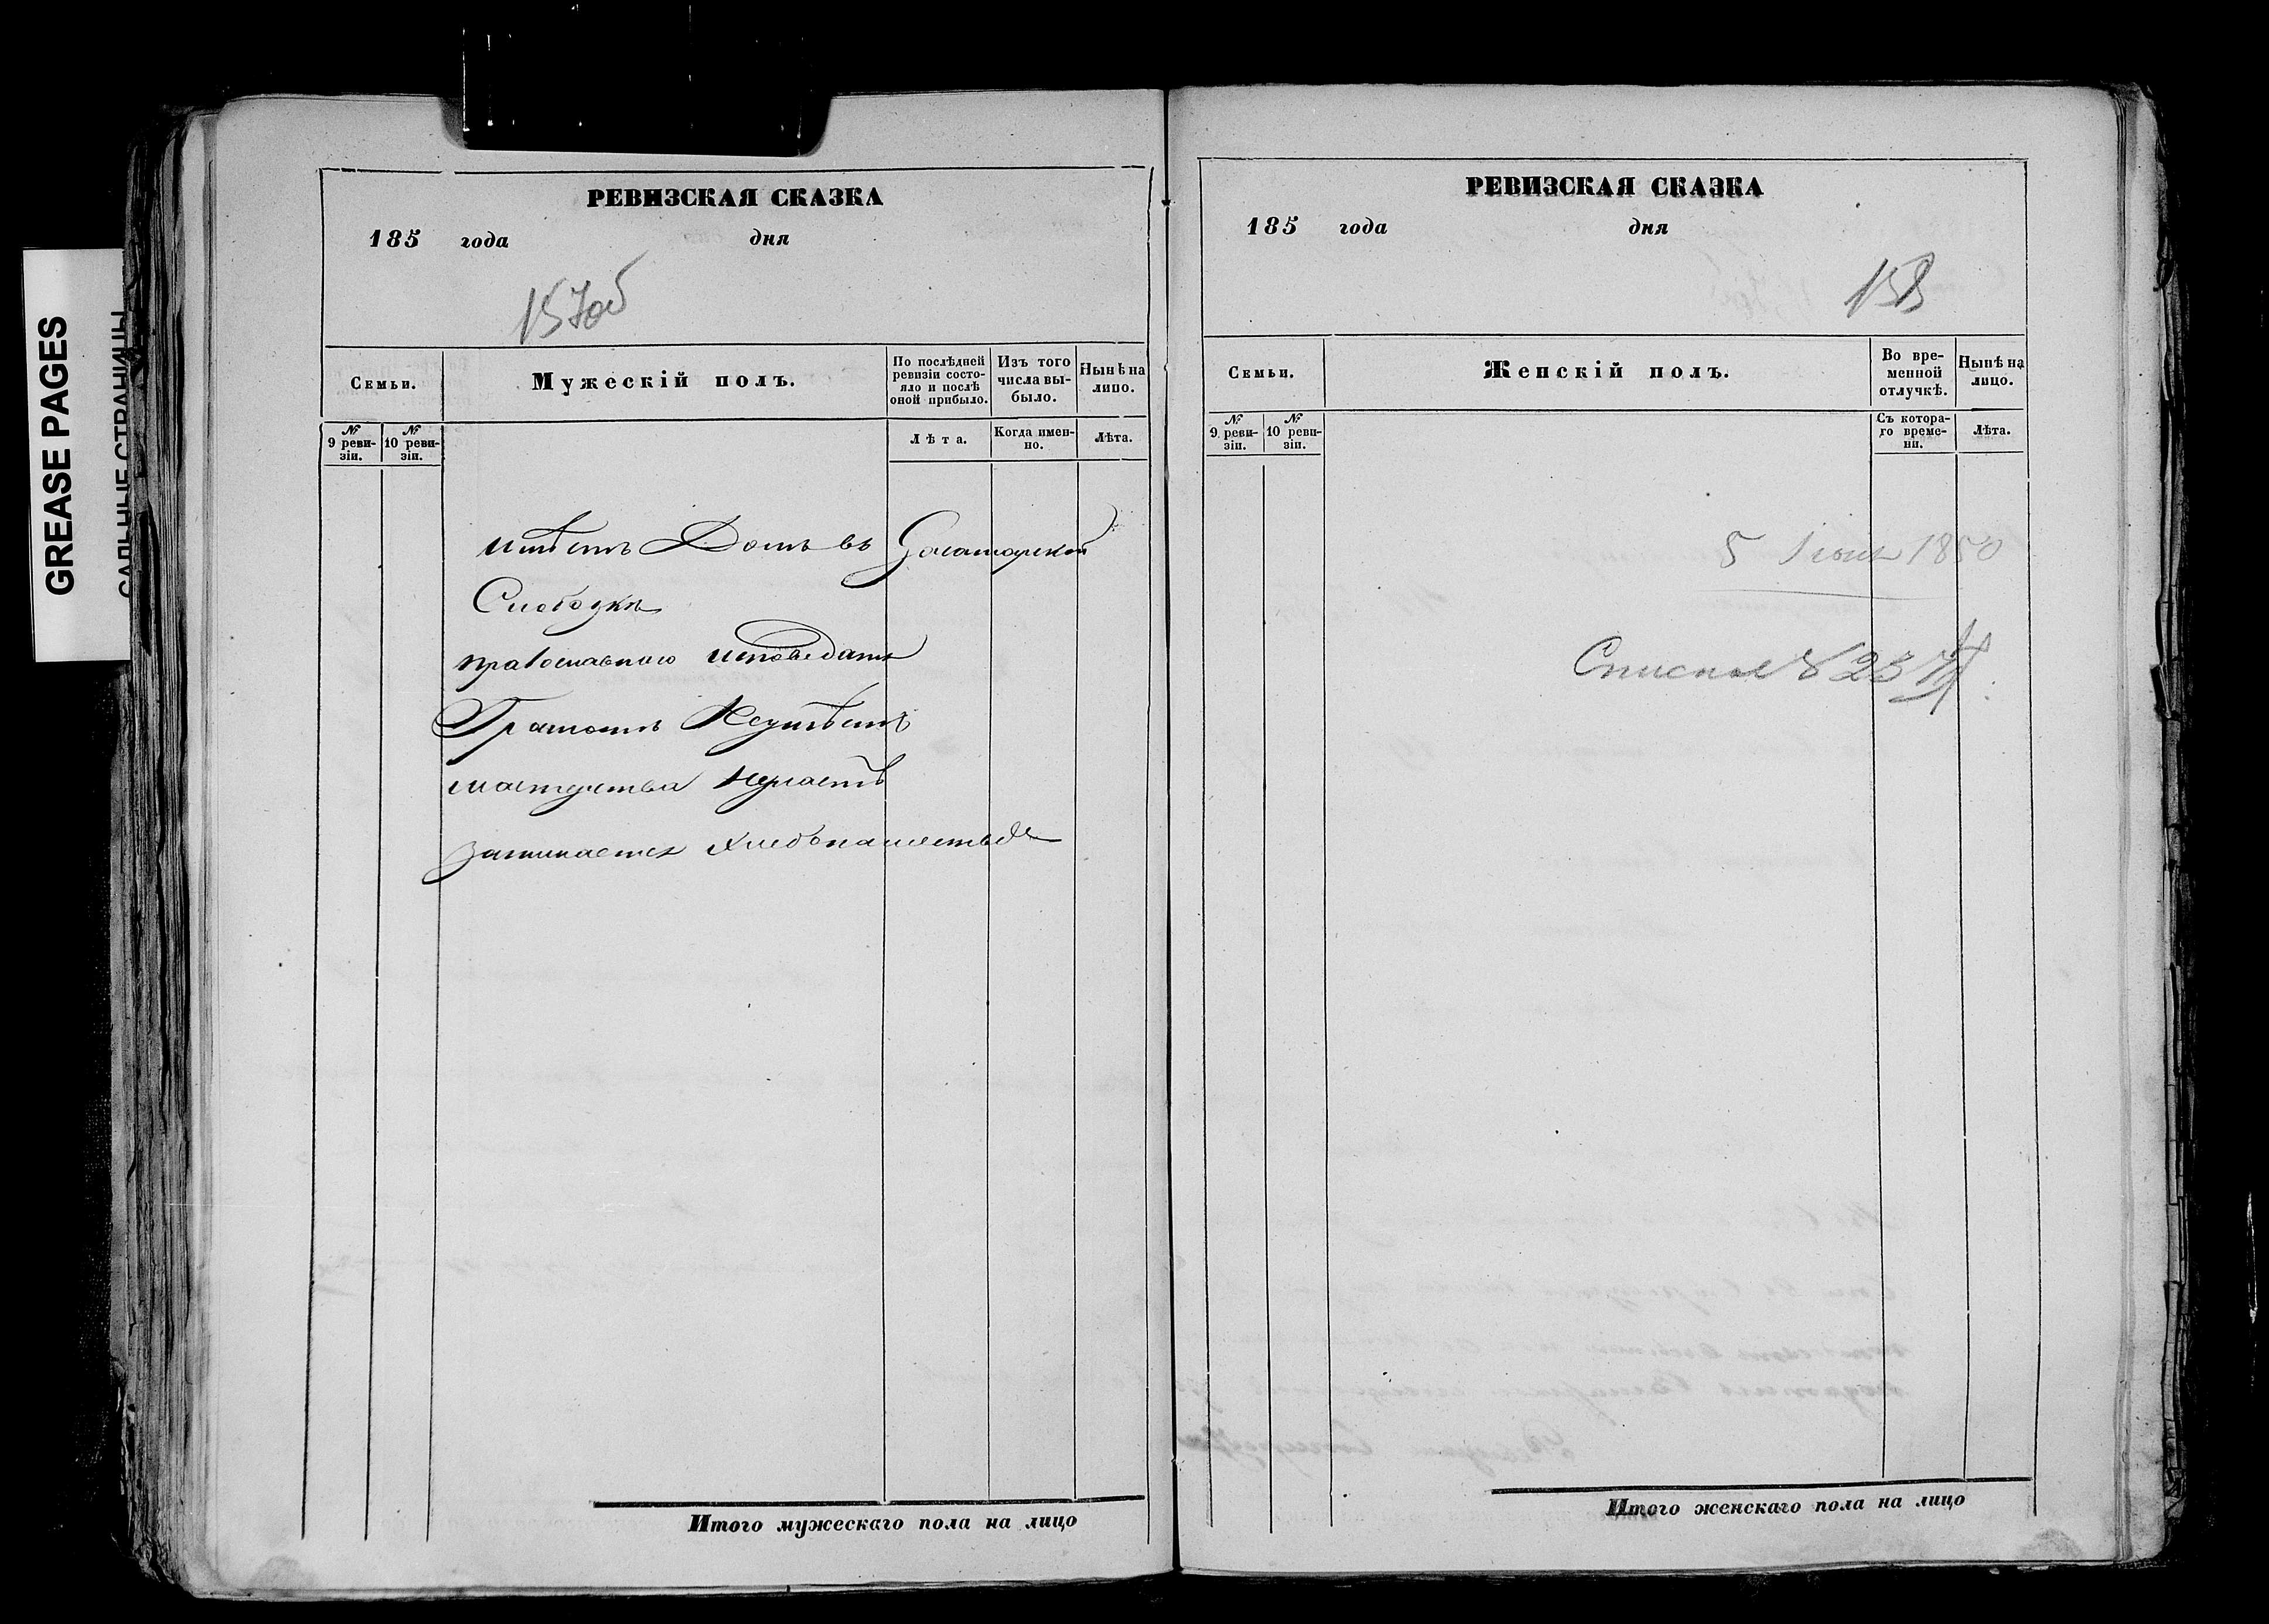 GREASE PAGES
САЛЬНЫЕ СТРАНИЦЫ
РЕВИЗСКАЯ СКАЗКА
185 года дня
157об
Семьи.
Мужескій полъ.
По послѣдней ревизіи состояло и послѣ оной прибыло.
Изъ того числа выбыло.
Нынѣ на лицо.
№ 9 ревизіи.
№ 10 ревизіи.
Лѣта.
Когда именно.
Лѣта.
имѣетъ Домъ въ
Слободкѣ
православнаго исповеданія
Грамотѣ Неумѣетъ
мастерства
занимается хлебопашествомъ
Итого мужескаго пола на лицо
РЕВИЗСКАЯ СКАЗКА
185 года дня
158
Семьи.
Женскій полъ.
Во временной отлучкѣ.
Нынѣ на лицо.
№ 9 ревизіи.
№ 10 ревизіи.
Съ котораго времени.
Лѣта.
5 1850
Итого женскаго пола на лицо